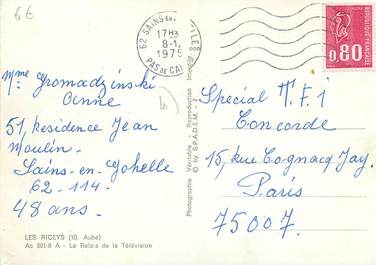 6€
62 SAINS EN
17H3
8-1
1976
PAS DE CAL
REPUBLIQUE FRANÇAISE
0,80
Mme Gromadzinski
51, residence Jean
Moulin.
Sains-en-Gohelle
62-114.
48 ans.
LES RICEYS (10. Aube)
Ac 501-8 A - Le Relais de la Télévision
Reproduction Interdite
Photographie Véritable
© by S.P.A.D.E.M.
Special T.F.1
Concorde
15, rue Cognacq Jay.
Paris
75007.